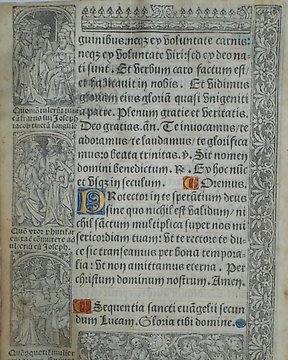 guinibus. neqꝫ ex voluntate carnis:
neqꝫ ex voluntate viri: sed ex deo na
ti sunt. Et verbum caro factum est/
et habitauit in nobis. Et vidimus
gloriam eius gloriā quasi vnigeniti
a patre. Plenum gratie et veritatis.
Deo gratias. añ. Te inuocamus/te
adoramus/te laudamus/te glorifica
mus: o beata trinitas. v. Sit nomen
domini benedictum. R. Ex hoc nūc
et vsqꝫ in seculum. Oremus.
PRotector in te speratium deus
sine quo nichil est validum/ ni
chil sāctum multiplica super nos mi
sericordiam tuam: vt te rectore te du
ce sic transeamus per bona tempora
lia: vt non amittamus eterna. Per
christum dominum nostrum. Amen.
Sequentia sancti euāgelii secun
dum Lucam. Gloria tibi domine.
Quomō
fratris sui Joseph
iacob
Quō vxor
Joseph.
mulier